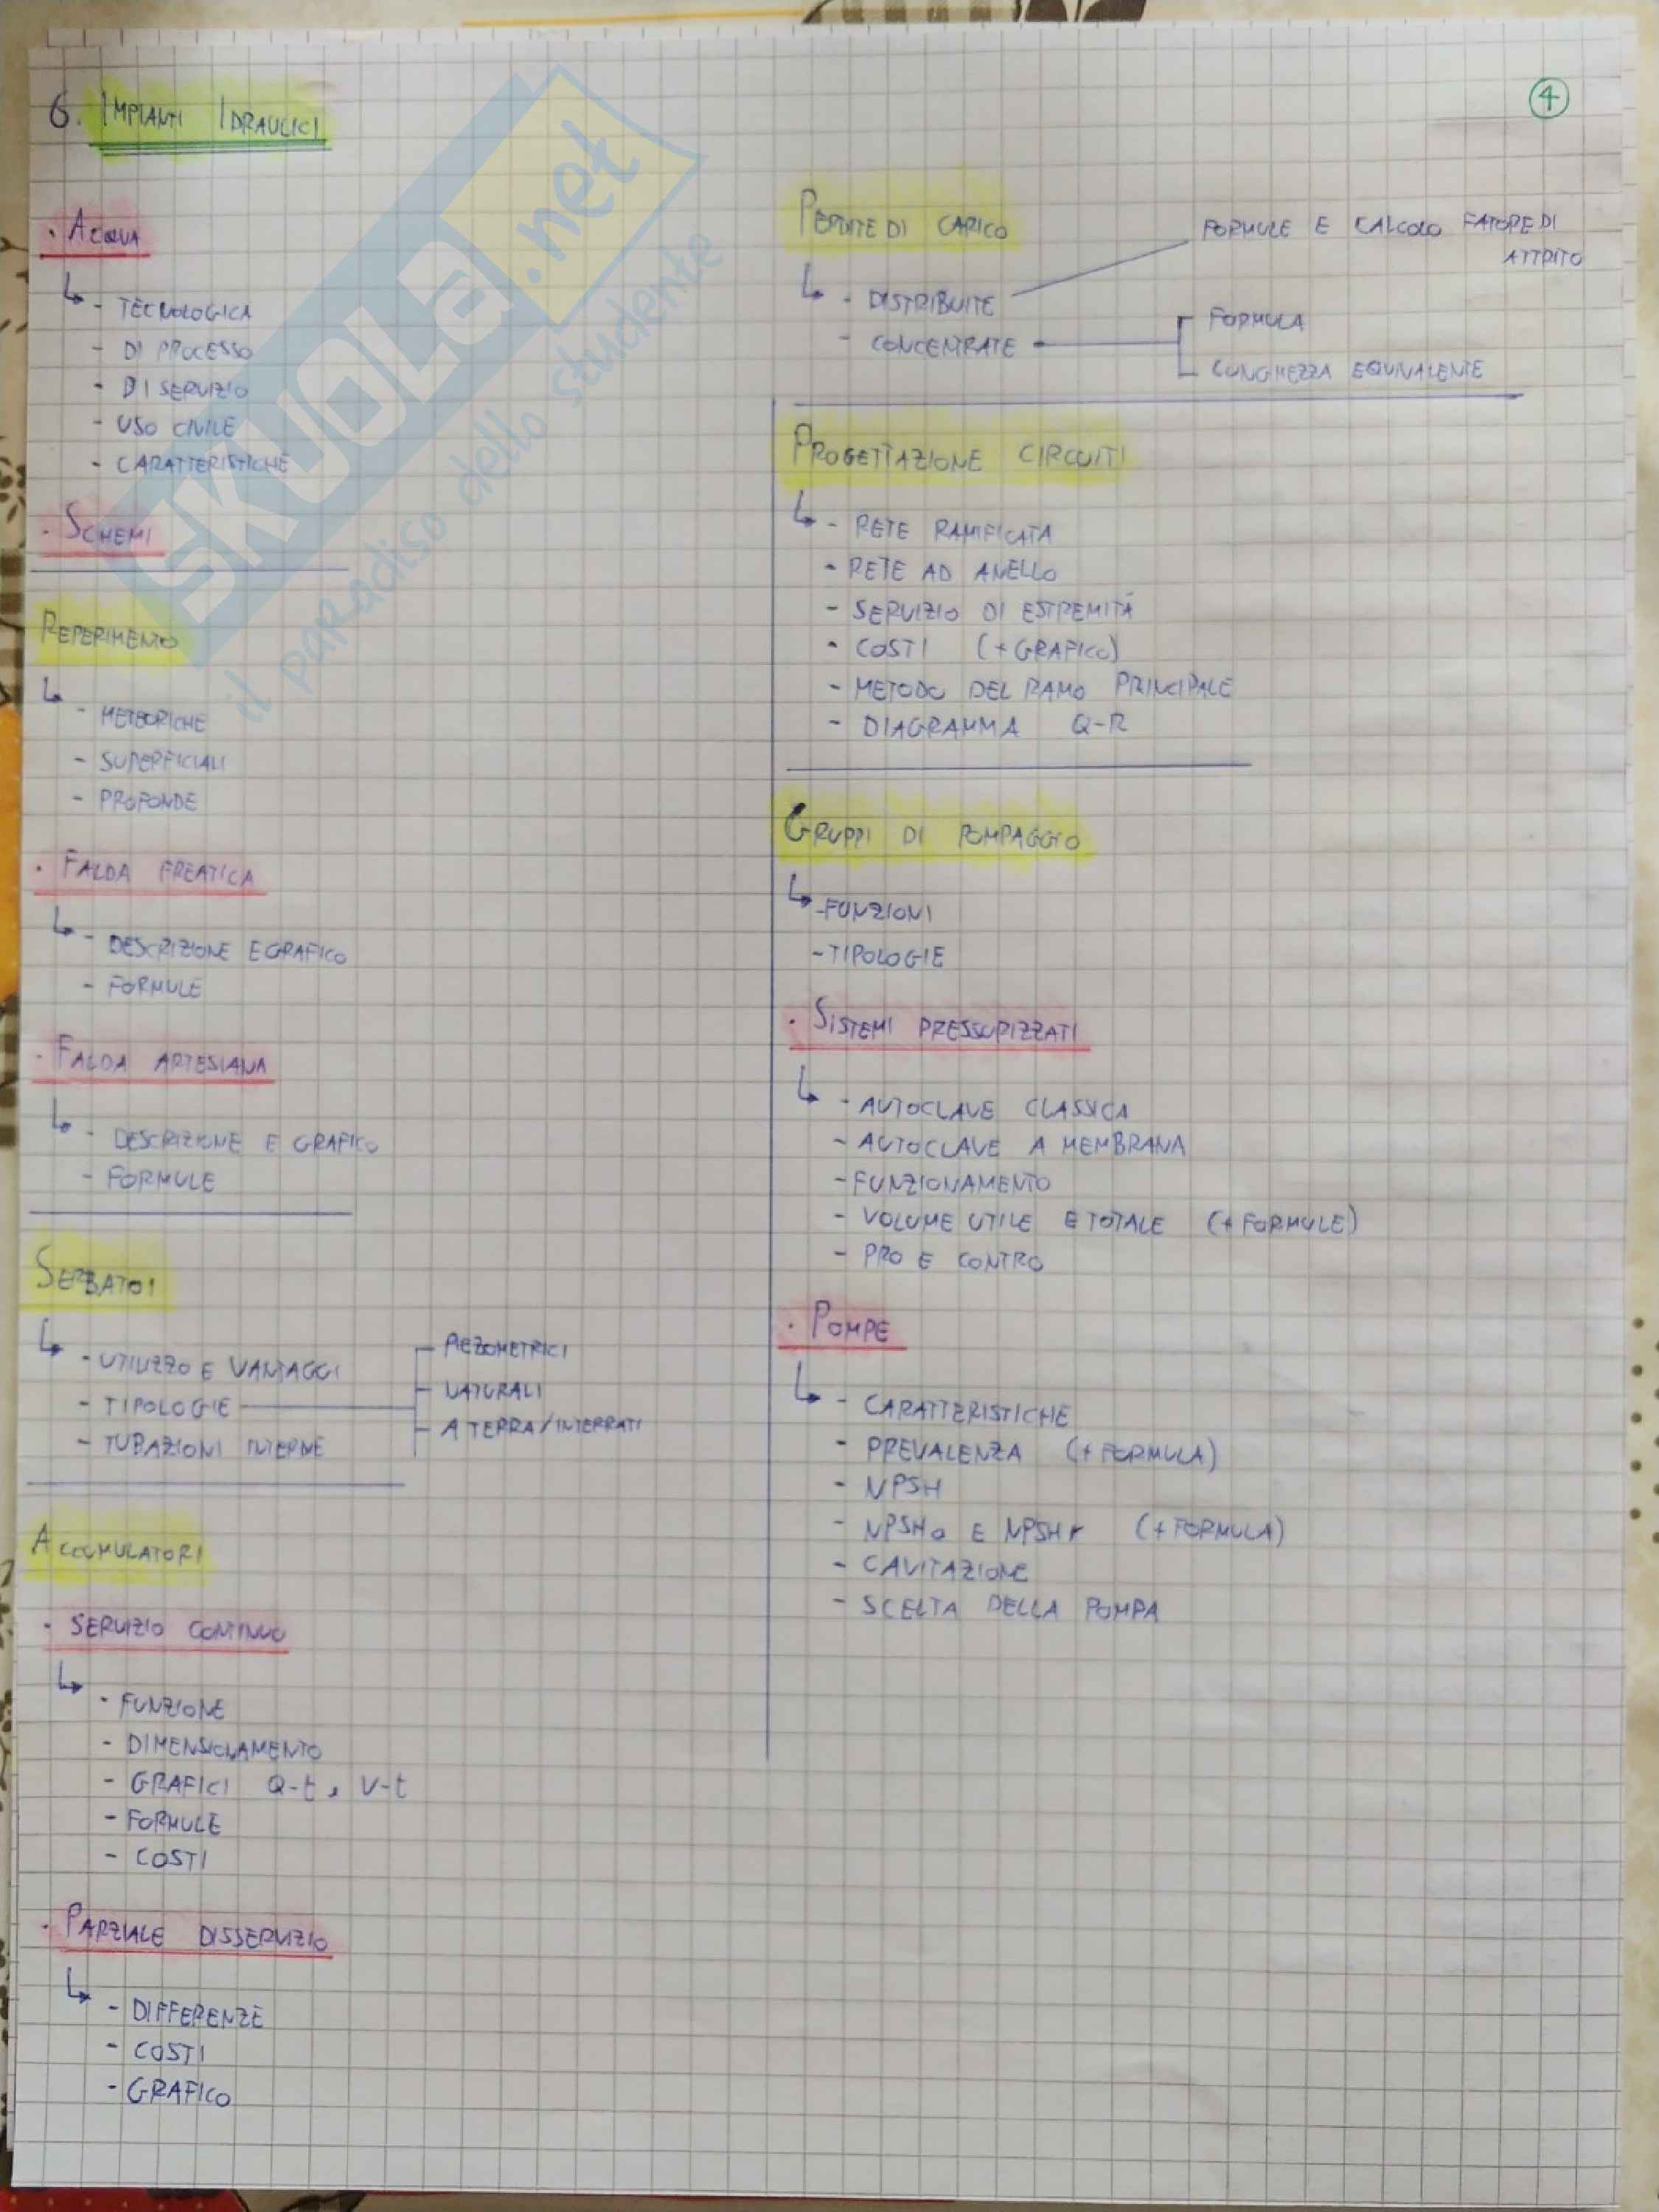 6. IMPIANTI IDRAULICI
4
· ACQUA
- TECNOLOGICA
- DI PROCESSO
- DI SERVIZIO
- USO CIVILE
- CARATTERISTICHE
· SCHEMI
REPERIMENTO
- METEORICHE
- SUPERFICIALI
- PROFONDE
· FALDA FREATICA
- DESCRIZIONE E GRAFICO
- FORMULE
· FALDA ARTESIANA
- DESCRIZIONE E GRAFICO
- FORMULE
SERBATOI
- UTILIZZO E VANTAGGI
- TIPOLOGIE
PIEZOMETRICI
NATURALI
A TERRA/INTERRATI
- TUBAZIONI INTERNE
ACCUMULATORI
· SERVIZIO CONTINUO
- FUNZIONE
- DIMENSIONAMENTO
- GRAFICI Q-t, V-t
- FORMULE
- COSTI
· PARZIALE DISSERVIZIO
- DIFFERENZE
- COSTI
- GRAFICO
PERDITE DI CARICO
- DISTRIBUITE
FORMULE E CALCOLO FATORE DI
ATTRITO
- CONCENTRATE
FORMULA
LUNGHEZZA EQUIVALENTE
PROGETTAZIONE CIRCUITI
- RETE RAMIFICATA
- RETE AD ANELLO
- SERVIZIO DI ESTREMITÀ
- COSTI (+ GRAFICO)
- METODO DEL RAMO PRINCIPALE
- DIAGRAMMA Q-R
GRUPPI DI POMPAGGIO
- FUNZIONI
- TIPOLOGIE
· SISTEMI PRESSURIZZATI
- AUTOCLAVE CLASSICA
- AUTOCLAVE A MEMBRANA
- FUNZIONAMENTO
- VOLUME UTILE E TOTALE (+ FORMULE)
- PRO E CONTRO
· POMPE
- CARATTERISTICHE
- PREVALENZA (+ FORMULA)
- NPSH
- NPSHa E NPSHr (+ FORMULA)
- CAVITAZIONE
- SCELTA DELLA POMPA
SKUOLA.net
il paradiso dello studente